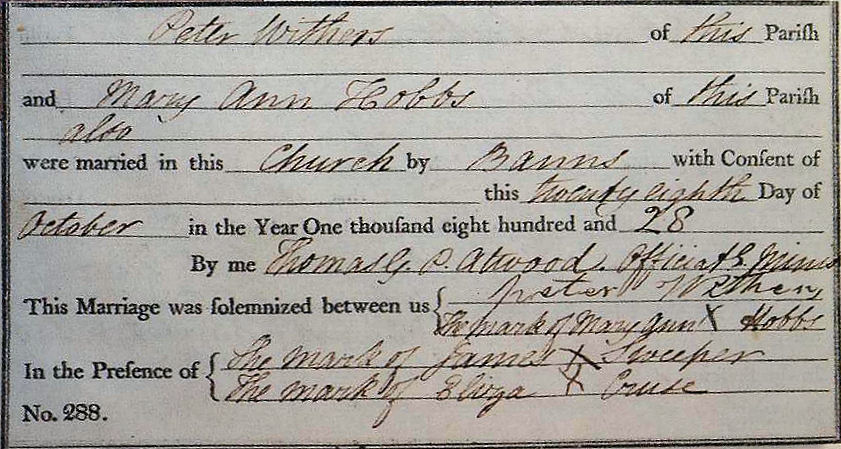 Peter Withers of this Pariſh
and Mary Ann Hobbs of this Pariſh
also
were married in this Church by Banns with Conſent of
this twenty eighth Day of
October in the Year One thouſand eight hundred and 28
By me Thomas G. P. Atwood. Officiat.g Minis
This Marriage was ſolemnized between us { Peter Withers
The mark of Mary Ann X Hobbs
In the Preſence of { The mark of James X Sweeper
The mark of Eliza X Cruse
No. 288.